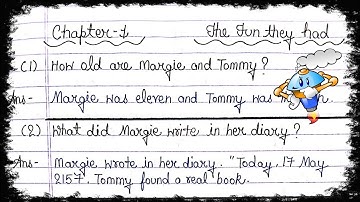 Chapter-1 The Fun they had
(1) How old are Margie and Tommy?
Ans- Margie was eleven and Tommy was
(2) What did Margie write in her diary?
Ans- Margie wrote in her diary. "Today, 17 May
2157, Tommy found a real book.